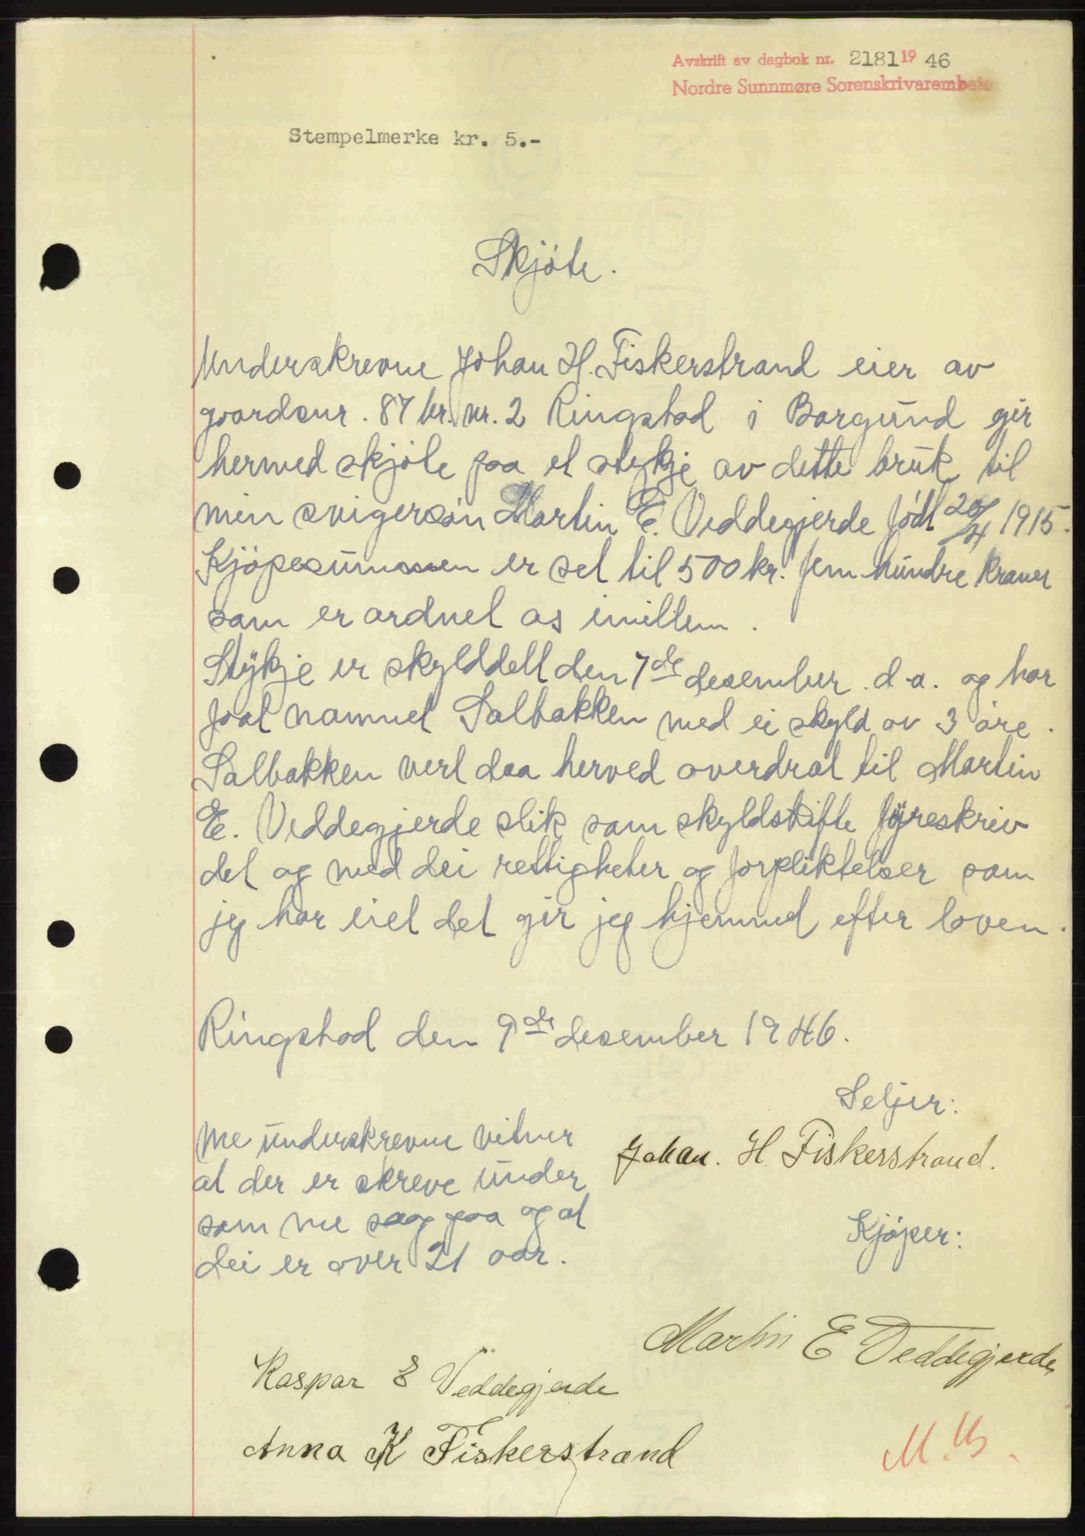 Avskrift av dagbok nr. 2181 19 46
Nordre Sunnmøre Sorenskrivarembete
Stempelmerke kr. 5.-
Skjöte.
Underskrevne Johan H. Fiskerstrand eier av
gaardsnr. 87 br. nr. 2 Ringstad i Borgund gir
hermed skjöte paa et stykje av dette bruk til
min svigersön Martin E. Veddegjerde födt 20/4 1915.
Kjöpesummen er set til 500 kr. fem hundre kroner
som er ordnet os imillem.
Stykje er skylddelt den 7de desember d.a. og har
faat namnet Solbakken med ei skyld av 3 øre.
Solbakken vert daa herved overdrat til Martin
E. Veddegjerde slik som skyldskifte föreskriv
det og med dei rettigheter og forpliktelser som
jeg har eiet det gir jeg hjemmel efter loven.
Ringstad den 9de desember 1946.
Seljer:
Me underskrevne vitner
Johan. H Fiskerstrand.
at der er skreve under
som me saag paa og at
Kjöper:
dei er over 21 aar.
Martin E Veddegjerde
Kaspar E Veddegjerde
Anna K Fiskerstrand